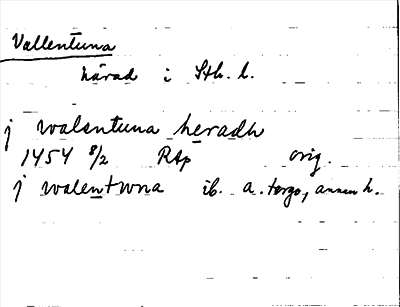 Vallentuna
härad i Sth. l.
j walentuna heradh
1454 8/2 RAp orig.
j walentwna ib. a. tergo, annan h.